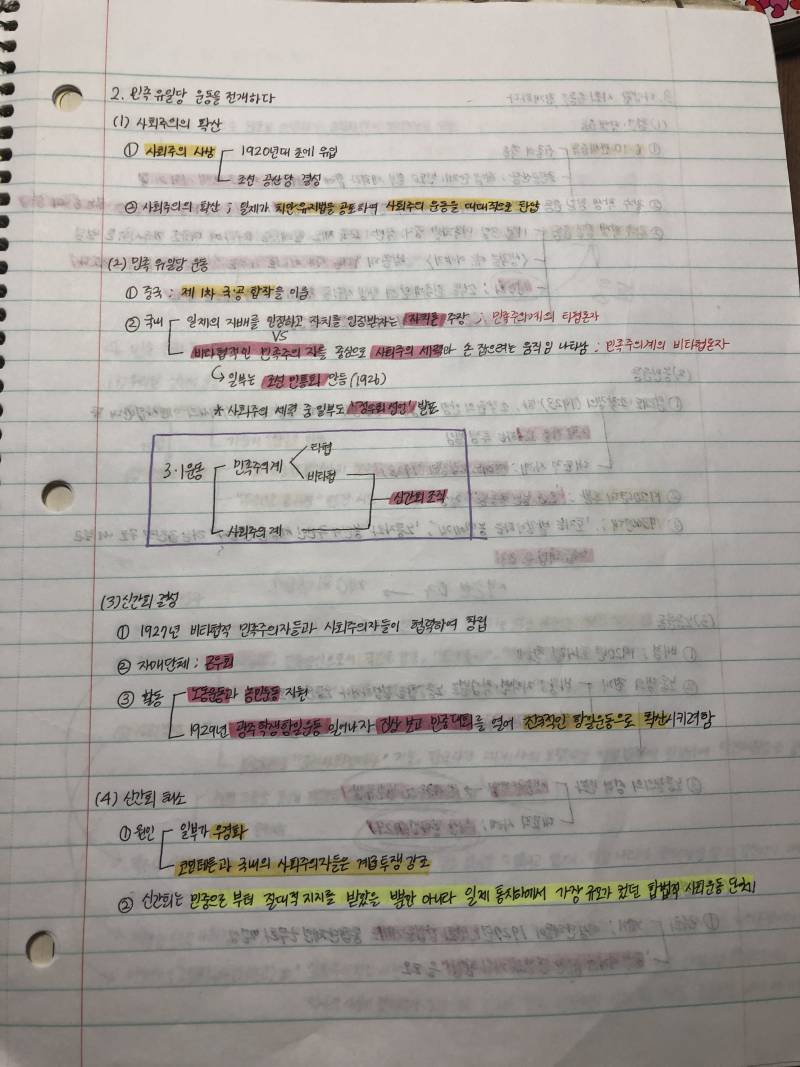 2. 민족 유일당 운동을 전개하다
(1) 사회주의의 확산
① 사회주의 사상 1920년대 초에 유입
조선 공산당 결성
② 사회주의의 확산 ; 일제가 치안유지법을 공포하여 사회주의 운동을 대대적으로 탄압
(2) 민족 유일당 운동
① 중국 : 제1차 국·공 합작을 이음
② 국내 일제의 지배를 인정하고 자치를 인정받자는 자치론 주장 ; 민족주의계의 타협론자
VS
비타협적인 민족주의자를 중심으로 사회주의 세력과 손 잡으려는 움직임 나타남 : 민족주의계의 비타협론자
↳ 일부는 조선 민흥회 만듦 (1926)
* 사회주의 세력 중 일부도 '정우회 선언' 발표
타협
3·1운동 민족주의계
비타협
신간회 조직
사회주의계
(3) 신간회 결성
① 1927년 비타협적 민족주의자들과 사회주의자들이 협력하여 창립
② 자매단체 : 근우회
③ 활동 노동운동과 농민운동 지원
1929년 광주학생항일운동 일어나자 진상 보고 민중대회를 열어 전국적인 항일운동으로 확산시키려 함
(4) 신간회 해소
① 원인 일부가 우경화
코민테른과 국내의 사회주의자들은 계급투쟁 강조
② 신간회는 민중으로부터 절대적 지지를 받았을 뿐만 아니라 일제 통치하에서 가장 규모가 컸던 합법적 사회운동 단체